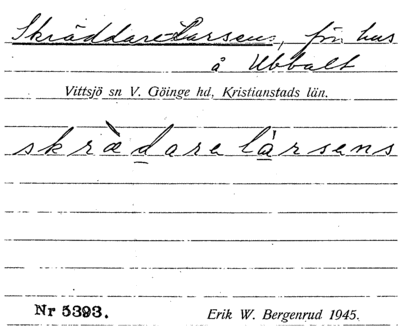 Skräddare-Larsens, frn hus
å Ubbalt
Vittsjö sn V. Göinge hd, Kristianstads län.
skrädare làrsens
Nr 5393.
Erik W. Bergenrud 1945.